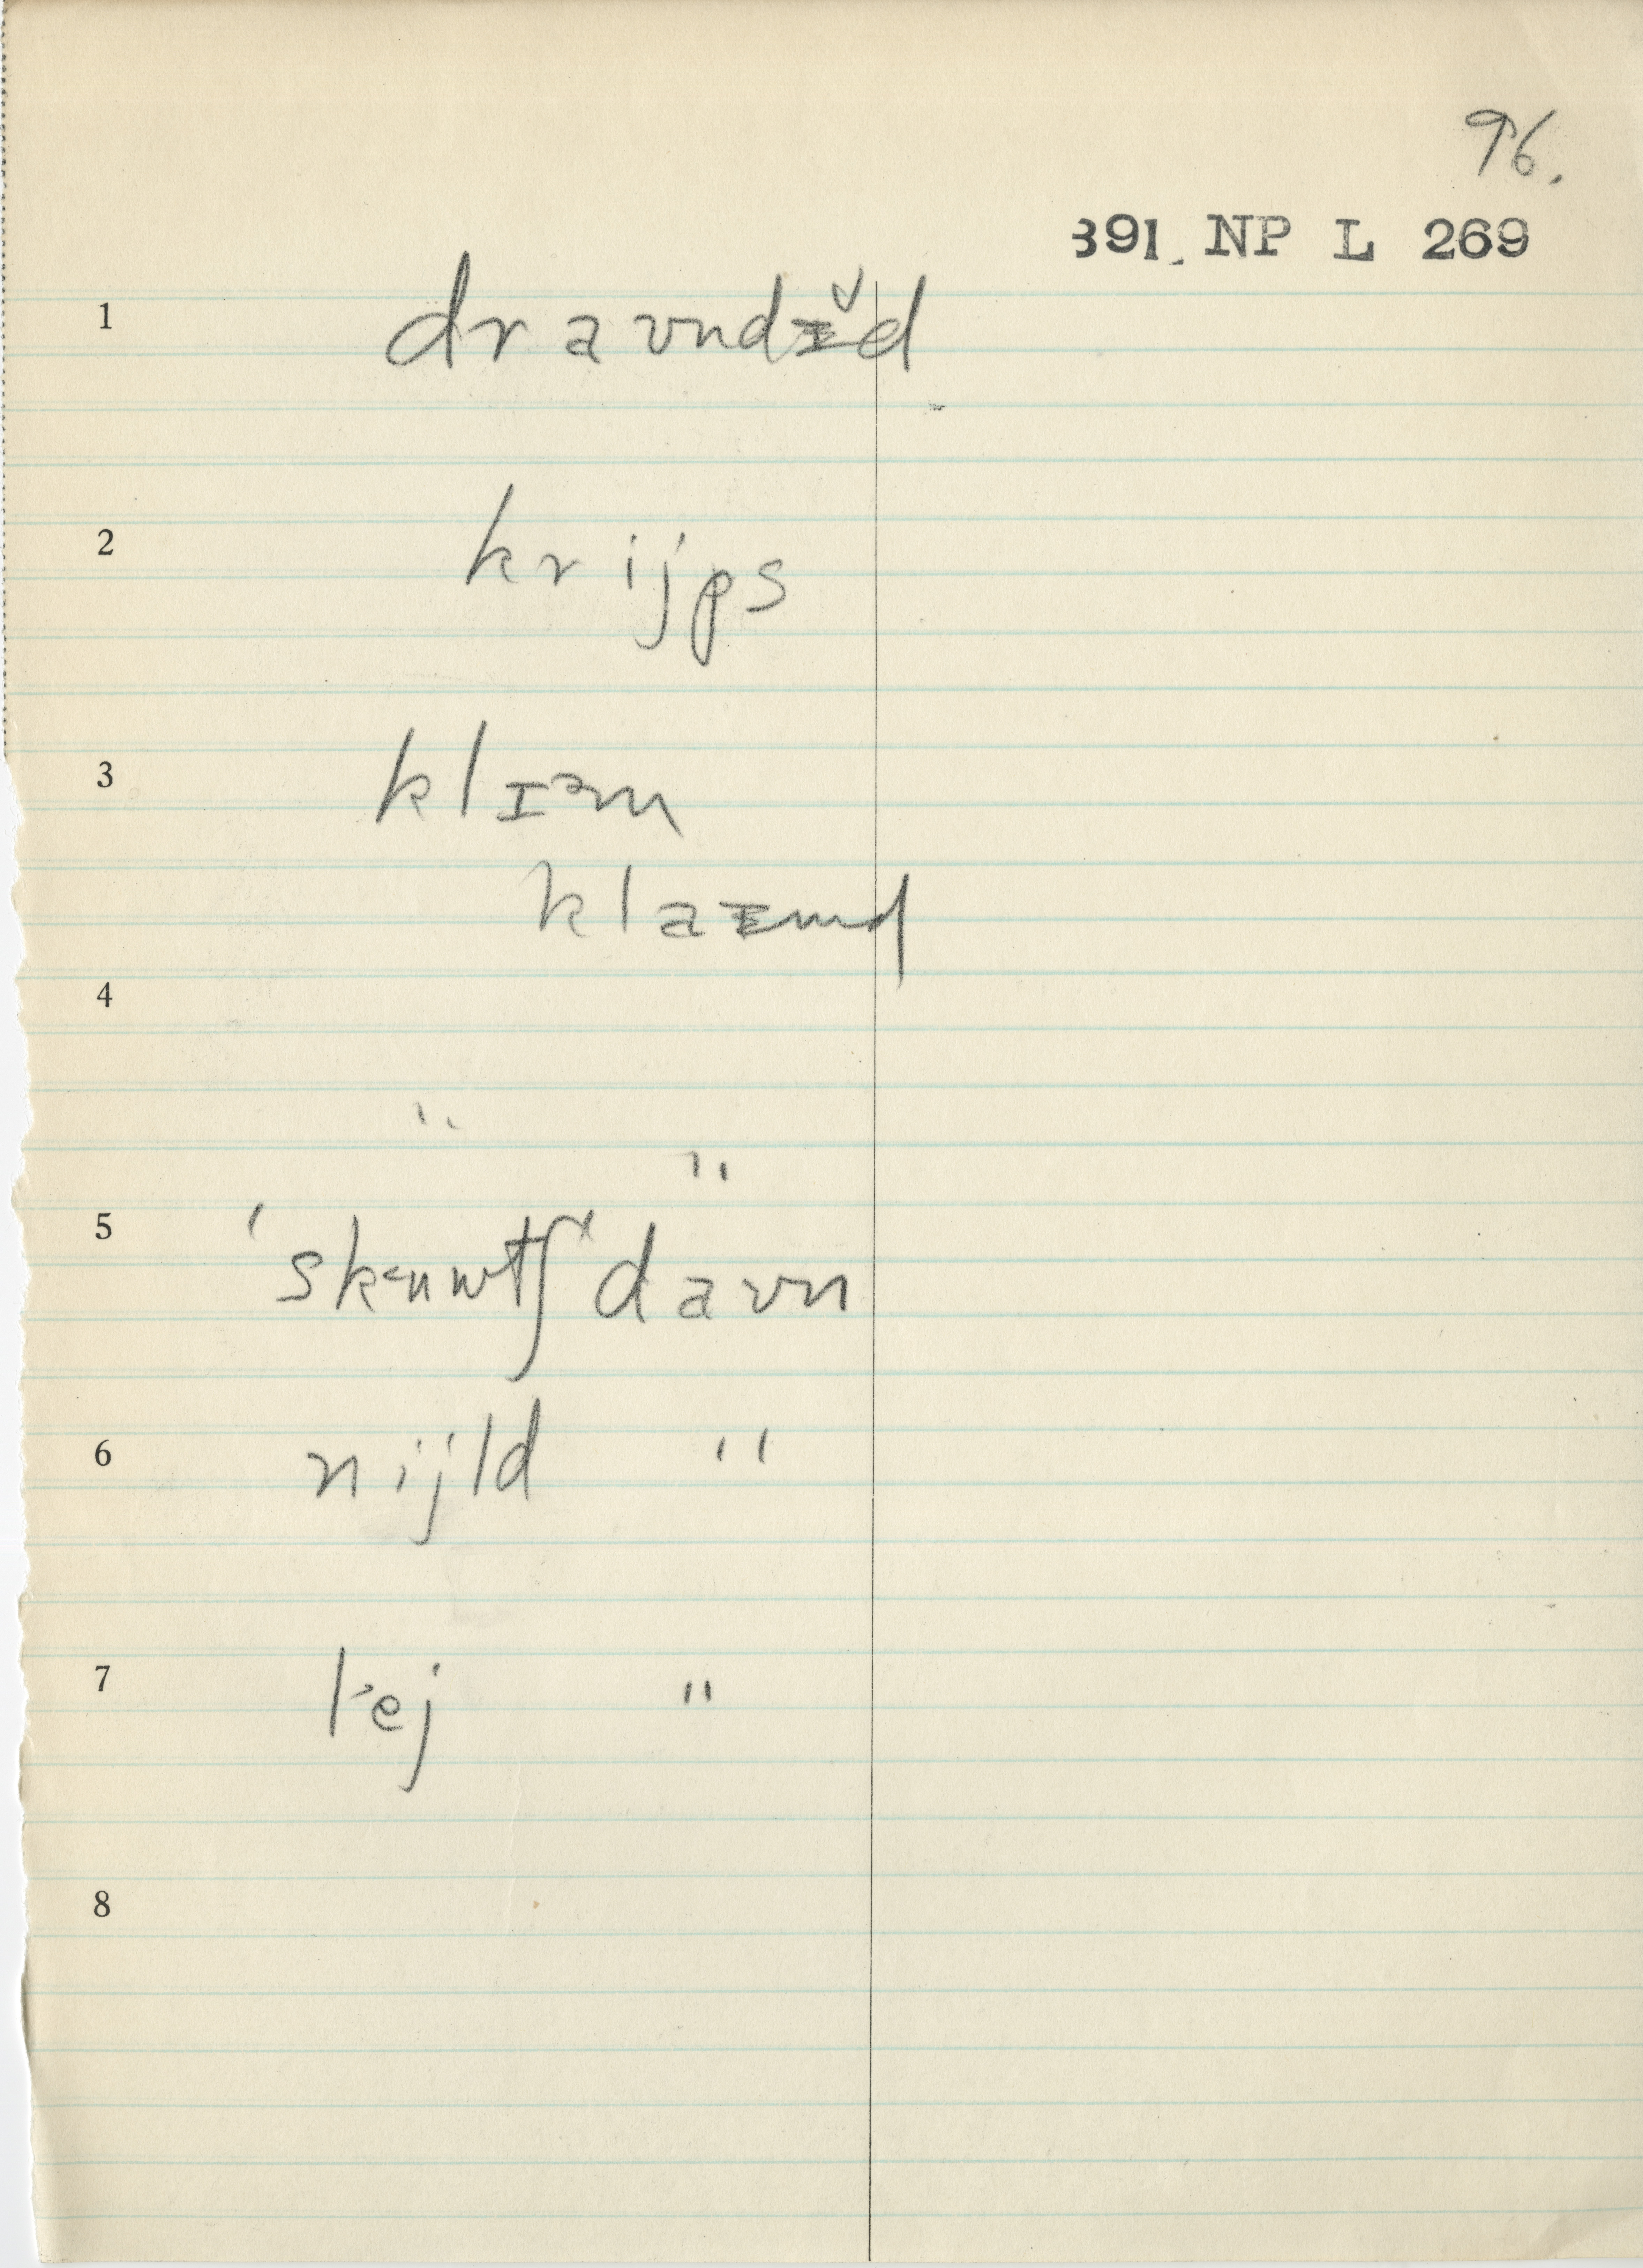 96.
391. NP L 269
1 draʊndɪ̵̆d
2 krijps
3 klɪᵊm
klaɪ̵md
4
" "
5 'skᵊuwtʃ' daʊn
6 nijld "
7 lᵊej "
8